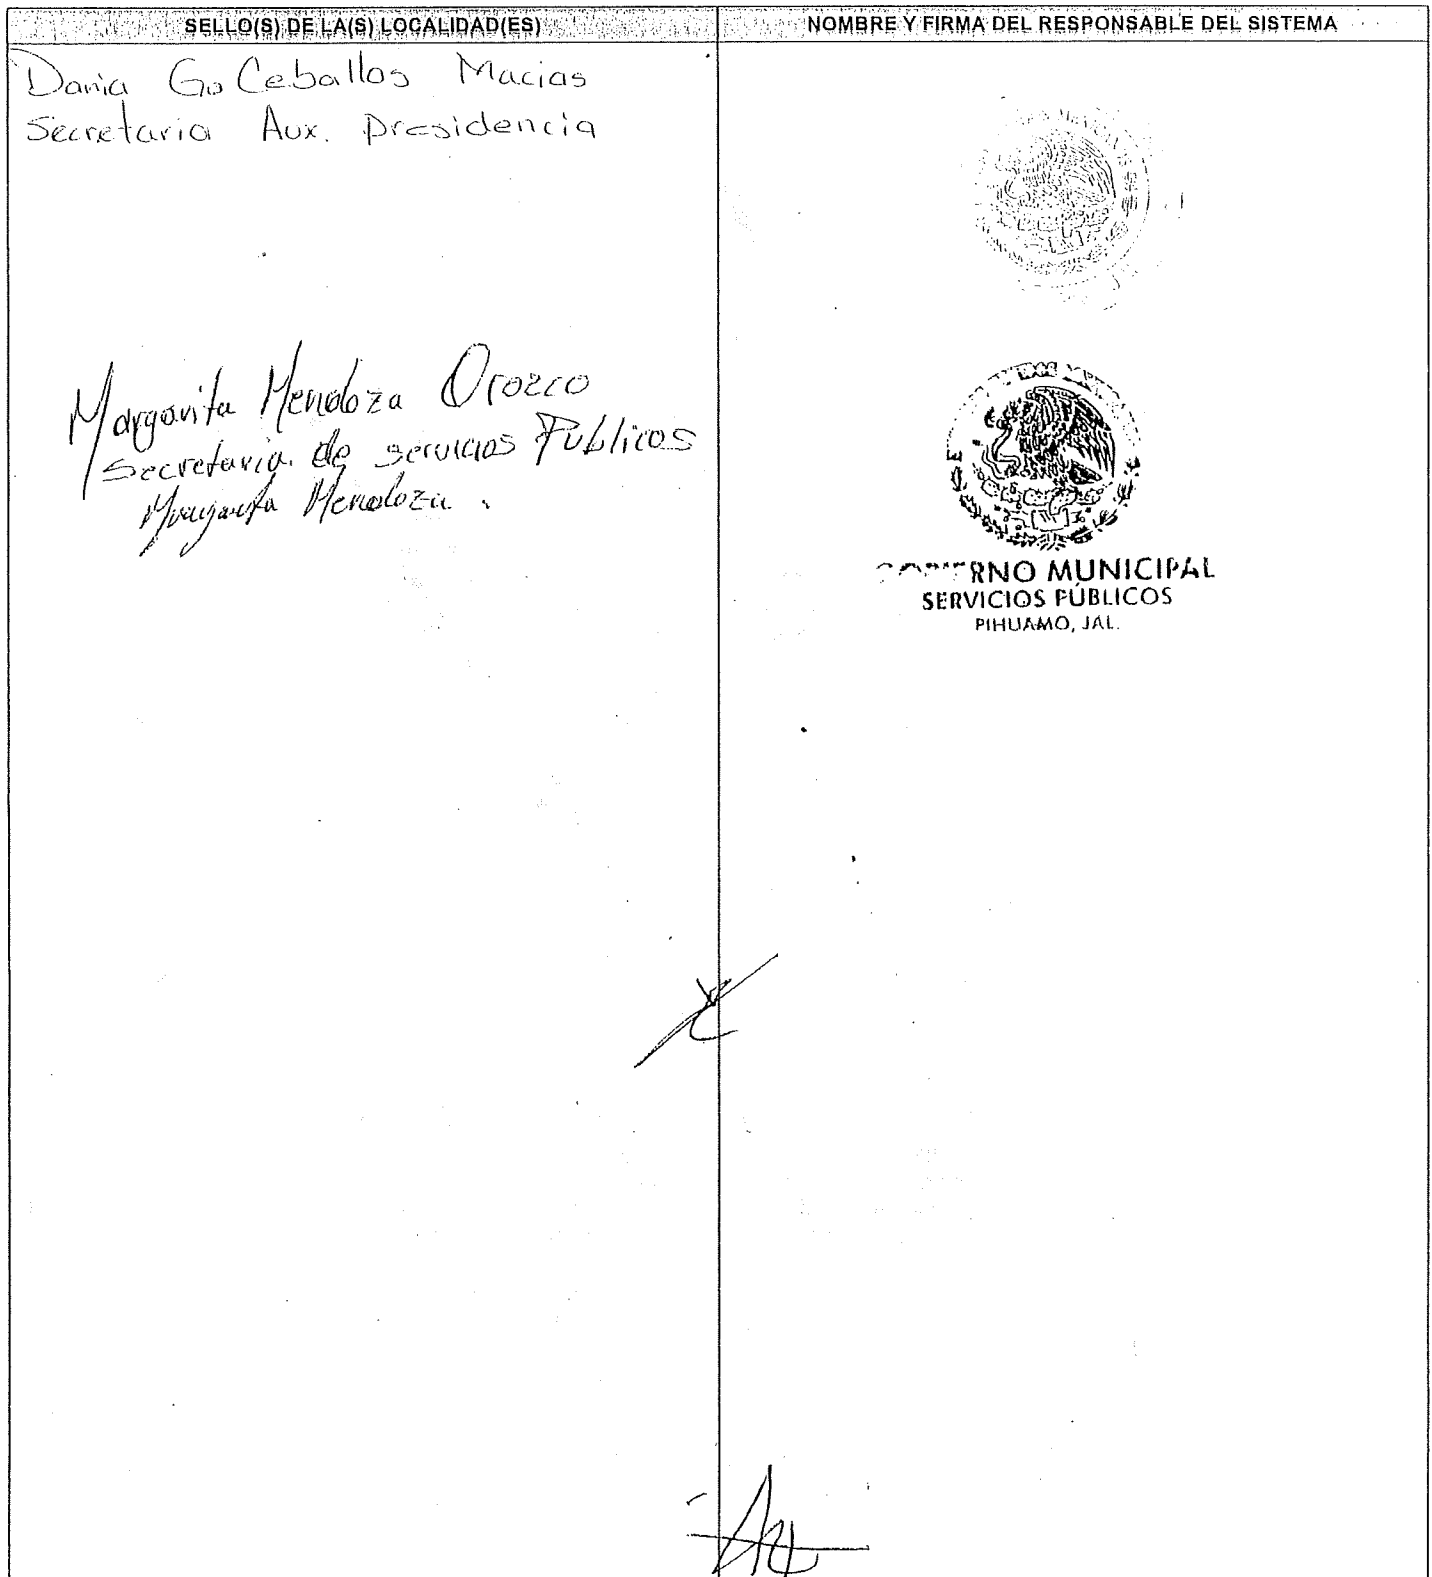 SELLO(S) DE LA(S) LOCALIDAD(ES)
NOMBRE Y FIRMA DEL RESPONSABLE DEL SISTEMA
Dania G. Ceballos Macias
Secretaria Aux. presidencia
Margarita Mendoza Orozco
Secretaria de servicios Publicos
Margarita Mendoza.
MUNICIPAL
SERVICIOS PÚBLICOS
PIHUAMO, JAL.